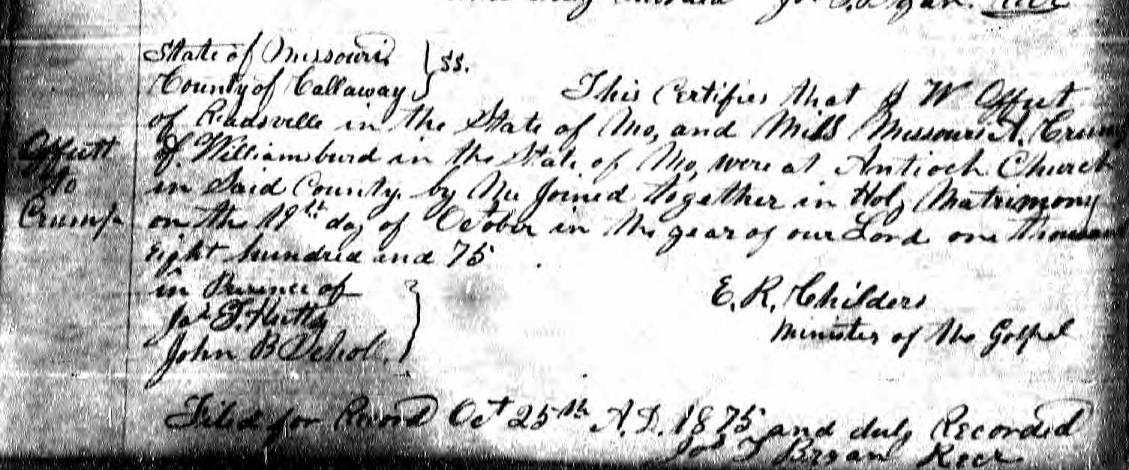 State of Missouri } ss.
County of Callaway
This Certifies that J W Offut
of Readsville in the State of Mo, and Miss Missouri A. Crump
of Williamsburd in the State of Mo, were at Antioch Church
Offutt
to
Crump
in Said County. by Me Joined together in Holy Matrimony
on the 19th day of October in the year of our Lord one thousand
eight hundred and 75
in Presence of
John B Schol
E. R. Childers
Minister of the Gospel
Filed for Record Oct 25th A.D. 1875 and duly Recorded
Jos T Bryan Recr